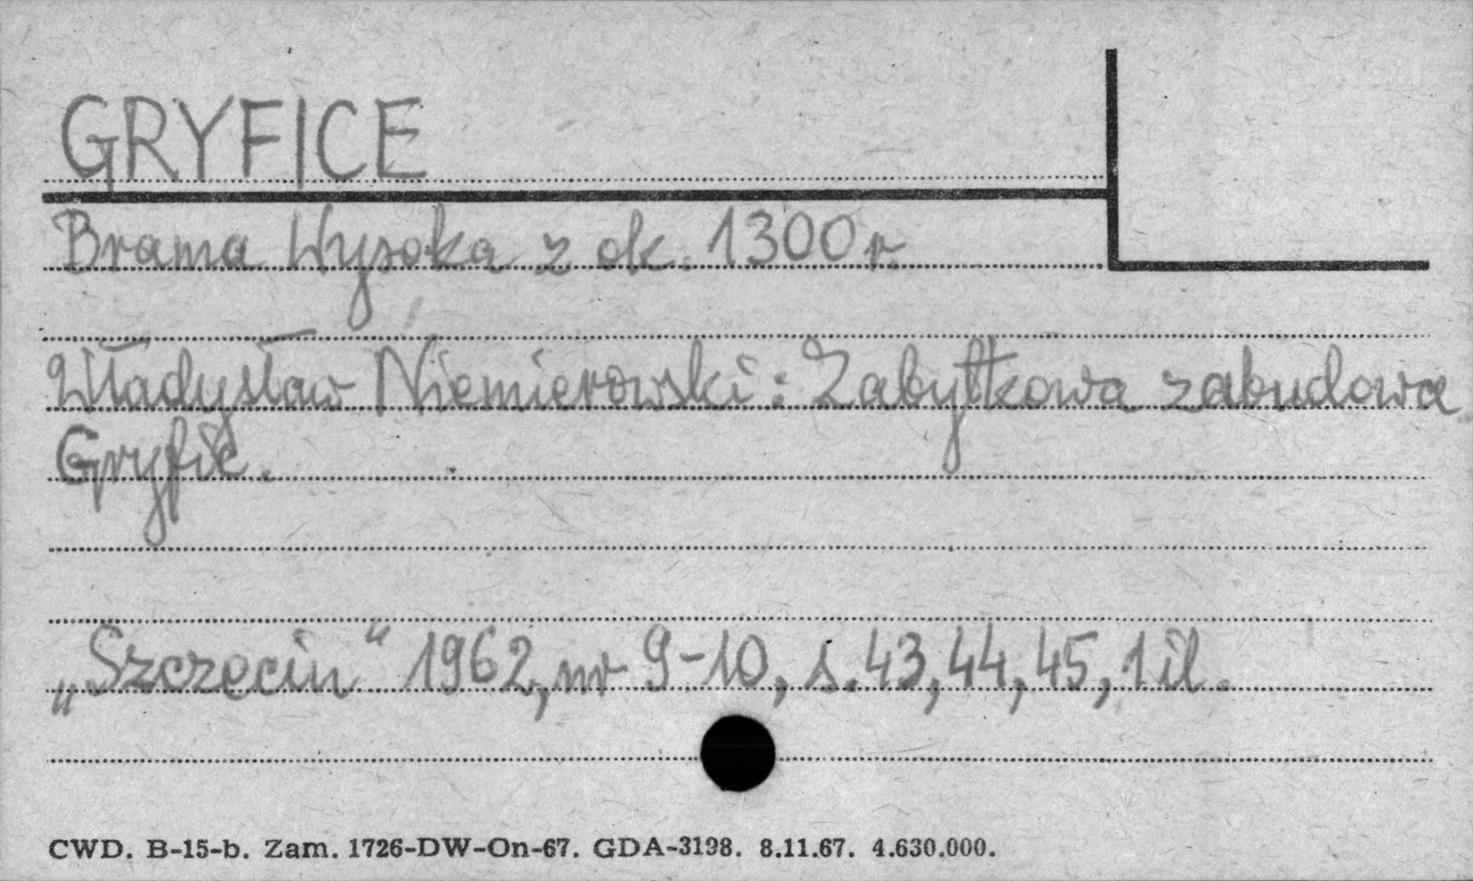 GRYFICE
Brama Wysoka z ok. 1300 r.
Władysław Niemierowski: Zabytkowa zabudowa
Gryfic.
„Szczecin“ 1962, nr 9-10, s. 43, 44, 45, 1 il.
CWD. B-15-b. Zam. 1726-DW-On-67. GDA-3198. 8.11.67. 4.630.000.